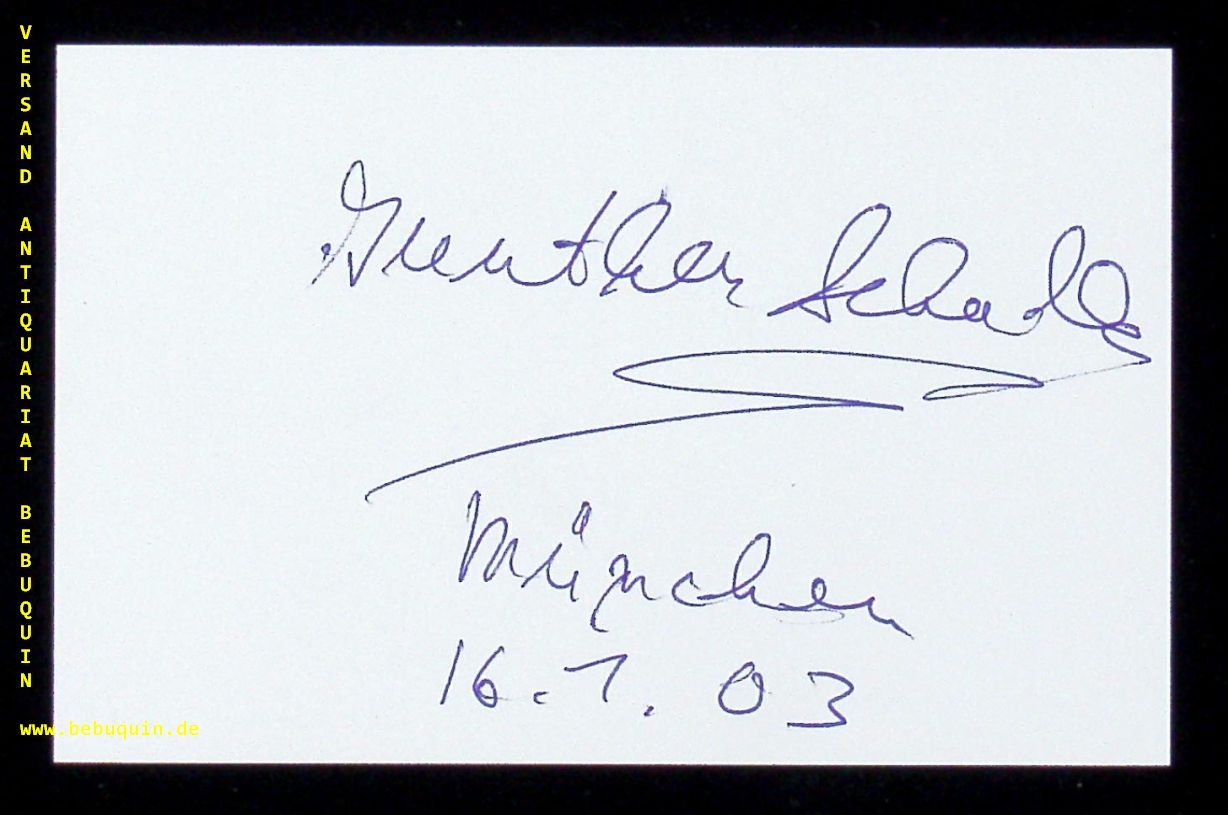 VERSAND ANTIQUARIAT BEBUQUIN
www.bebuquin.de
Guenther
München
16.1.03